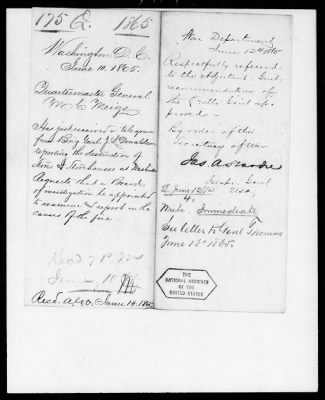 175 Q. 1865
Washington D.C.
June 10. 1865.
Quartermaster General
M C Meigs
Has just received a telegram
from Brig Genl. J. L. Donaldson
reporting the destruction of
Store Houses at Nashville
Requests that a Board
of investigation be appointed
to examine & report on the
causes of the fire.
Recd 7 P.M
June 10
Recd. A.G.O. June 14. 1865
War Department
June 12th 1865
Respectfully referred
to the Adjutant Genl.
recommendation of
the Q Mr Genl ap
proved -
By order of the
Secretary of War
Jas. A. Hardie
Inspr Genl
USA
Write. Immediate
See letter to Genl Thomas
June 13th 1865.
THE
NATIONAL ARCHIVES
OF THE
UNITED STATES